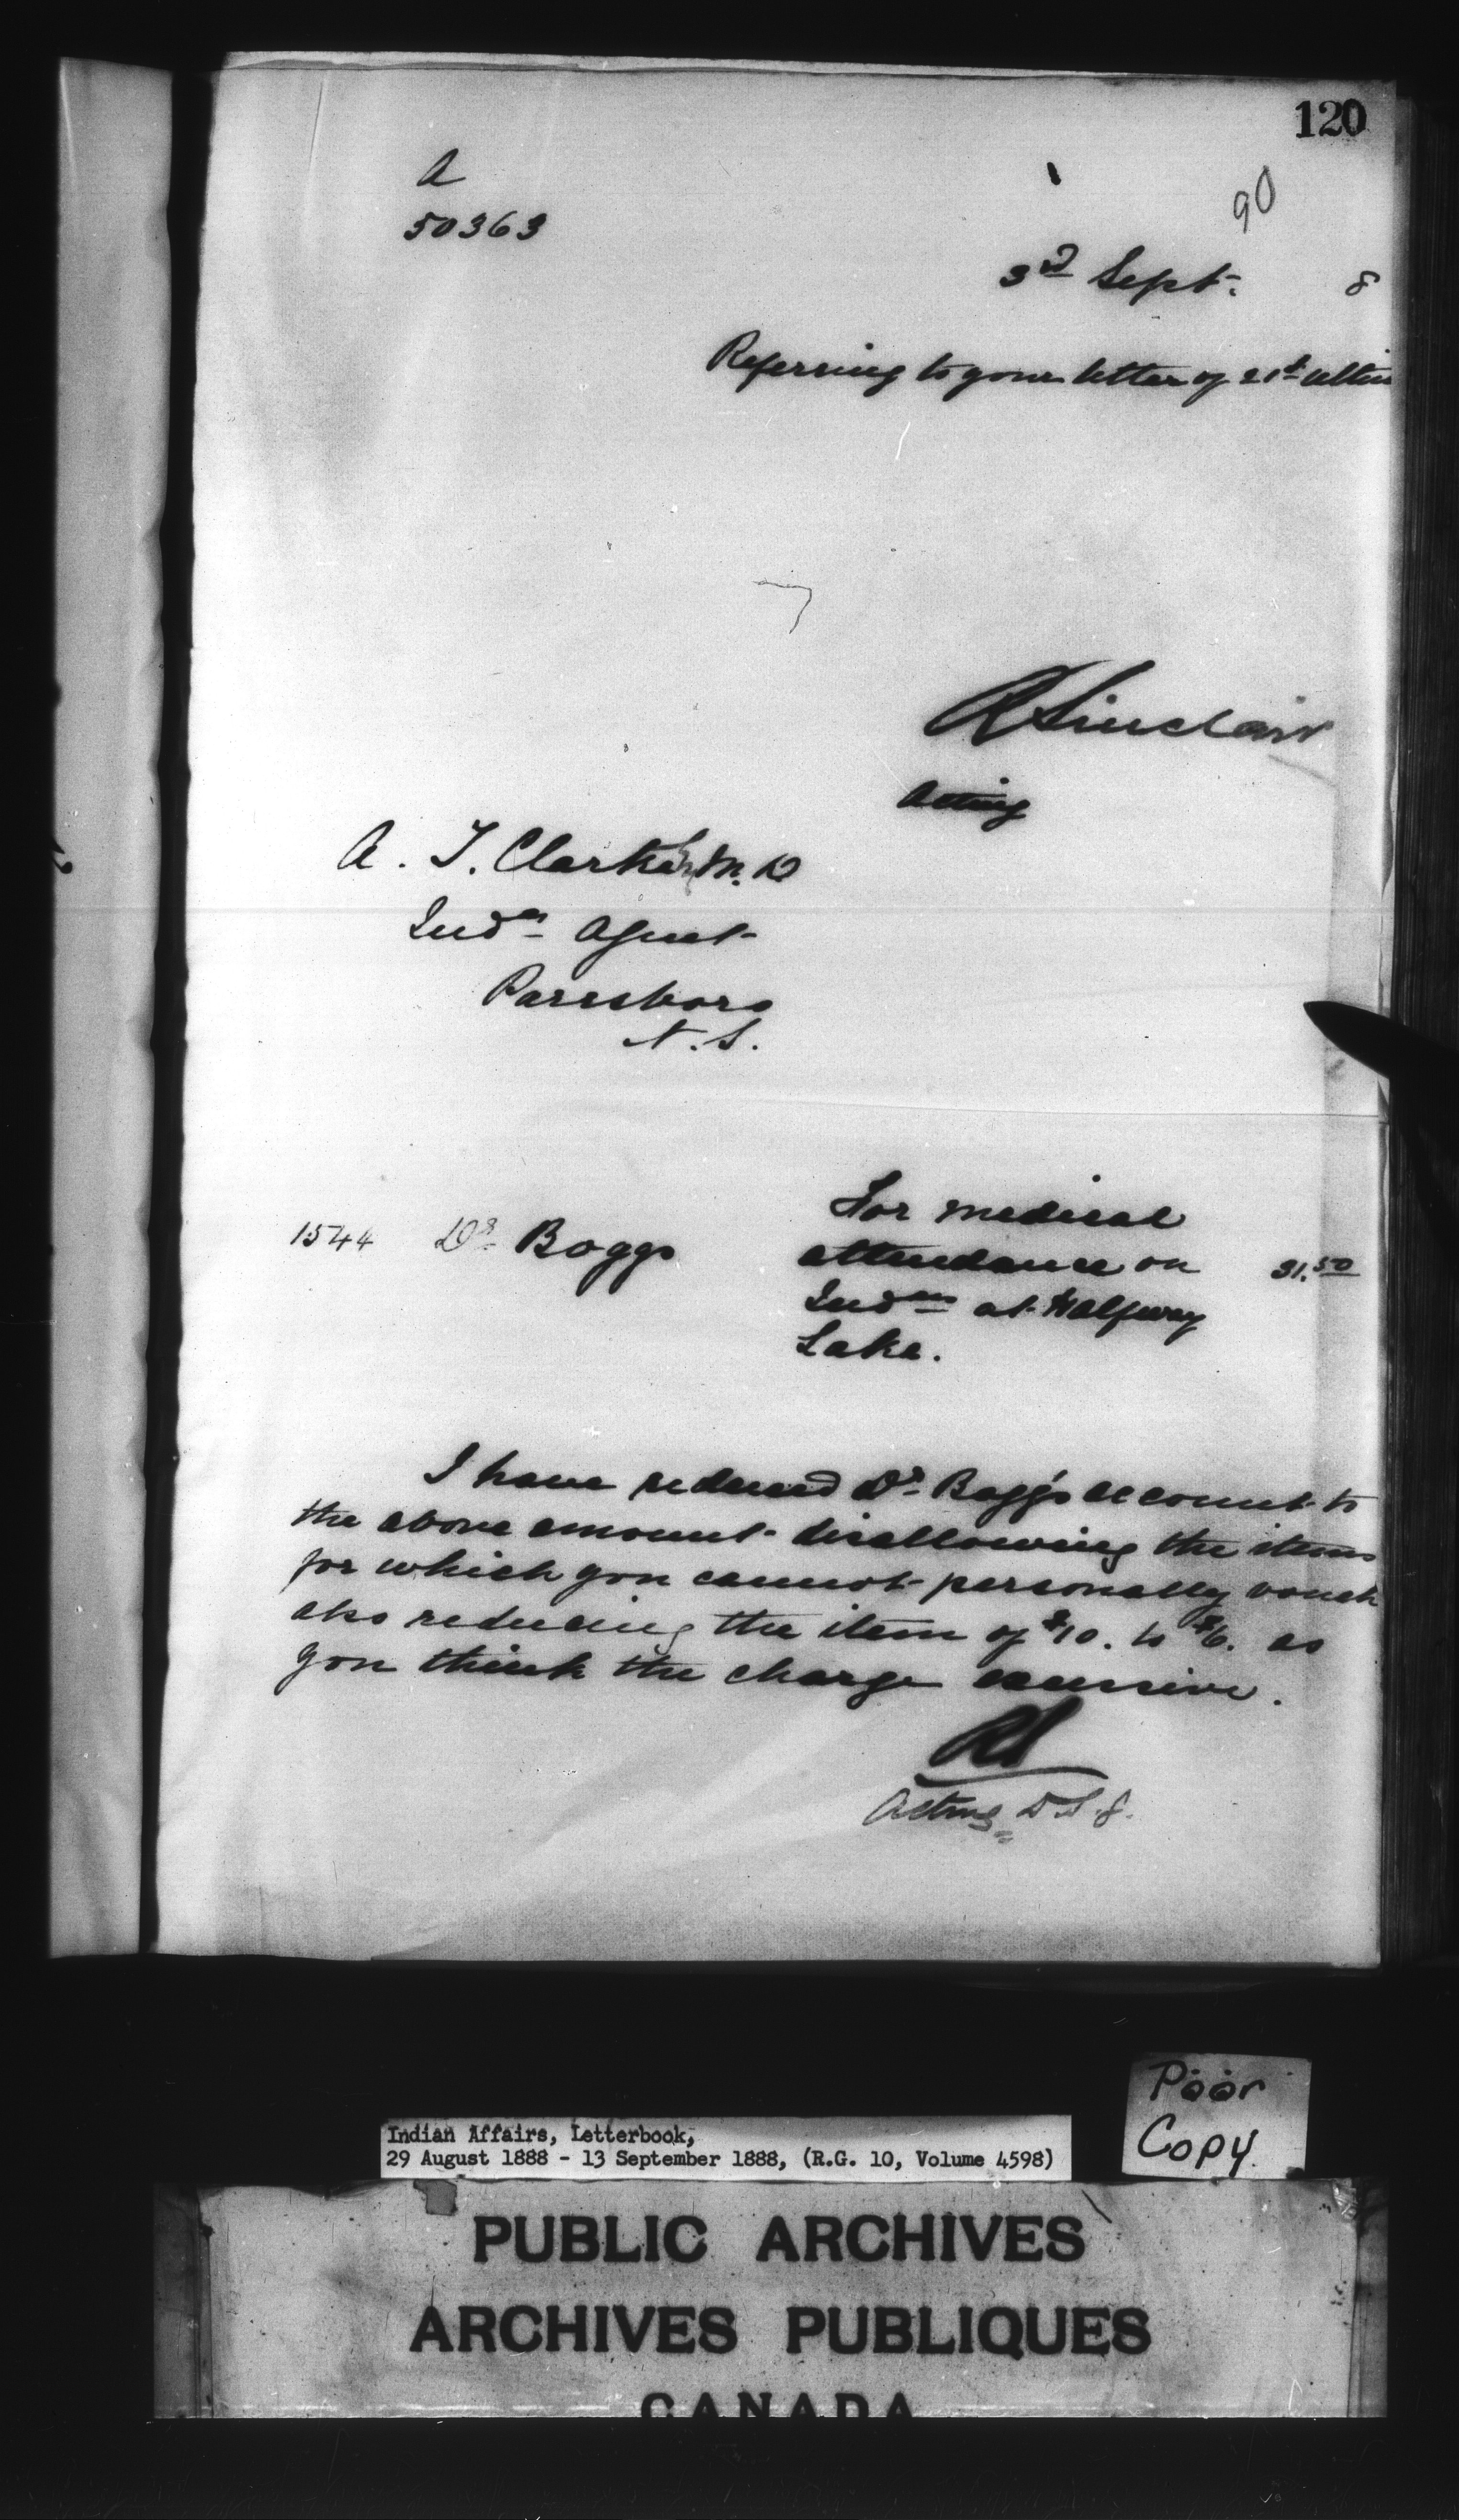 120
A
50363
90
3rd Sept. 8
Referring to your letter of 21st ultim
R Sinclair
Acting
A. T. Clarke M.D
Indn Agent
Parrsboro
N.S.
1544 Dr Boggs For medical
attendance on 31.50
Indns at Halfway
Lake.
I have reduced Dr Bogg's account to
the above amount disallowing the items
for which you cannot personally vouch
also reducing the item of $10. to $6. as
you think the charge excessive.
RS
Acting D S. G.
Poor
Copy
Indian Affairs, Letterbook,
29 August 1888 - 13 September 1888, (R.G. 10, Volume 4598)
PUBLIC ARCHIVES
ARCHIVES PUBLIQUES
CANADA